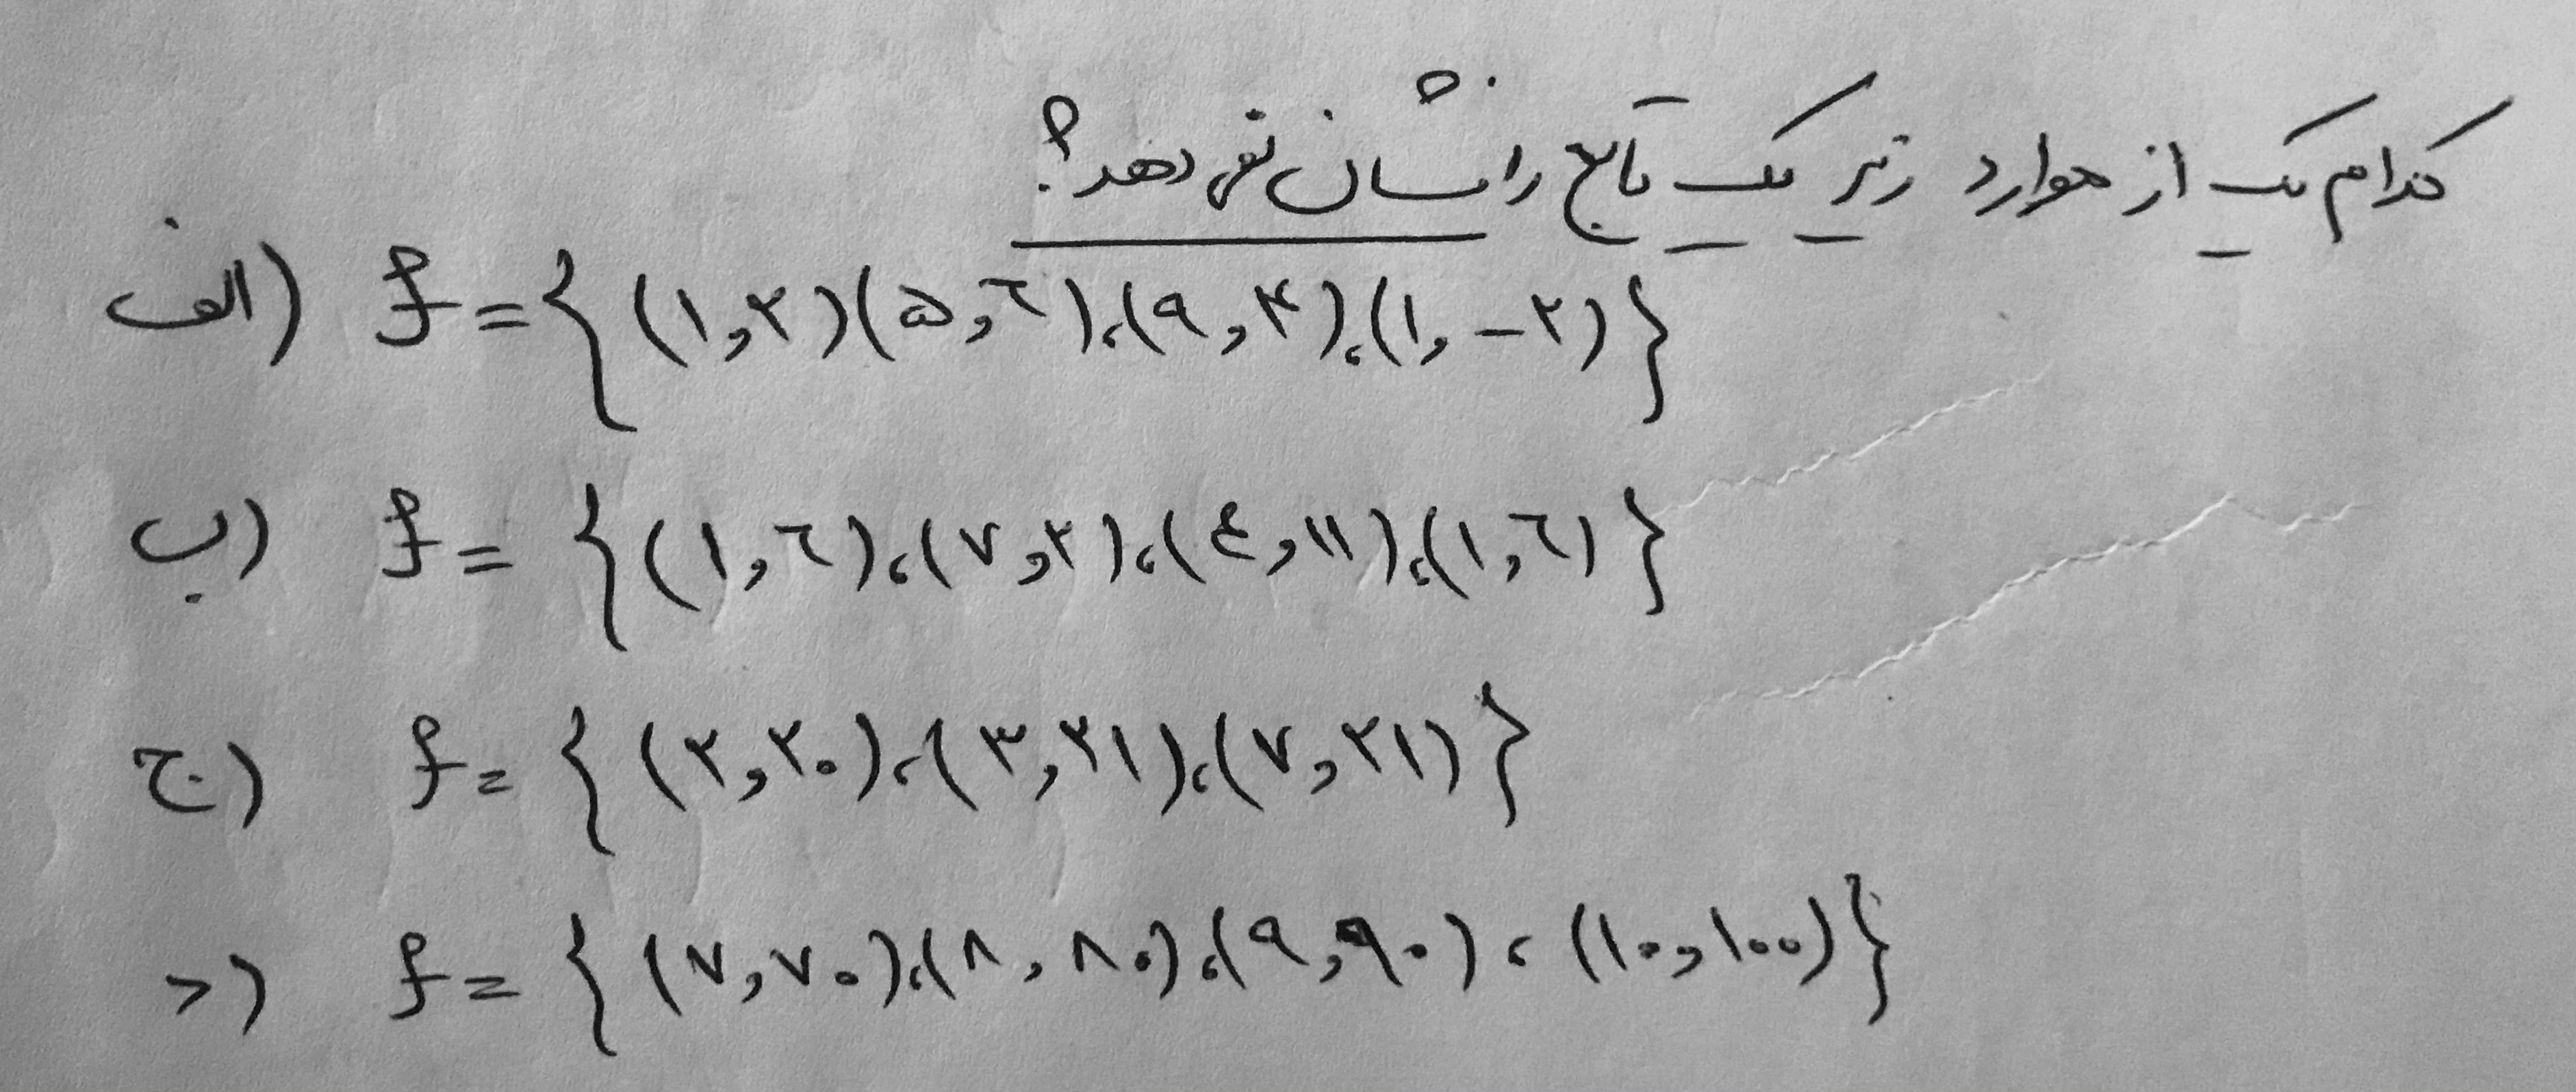 کدام یک از موارد زیر یک تابع را نشان نمی دهد؟
الف) f = {(۱,۲)(۵,۶)،(۹,۴)،(۱,-۲)}
ب) f = {(۱,۶)،(۷,۲)،(٤,۱۱)،(۱,۶)}
ج) f = {(۲,۲۰)،(۳,۲۱)،(۷,۲۱)}
د) f = {(۷,۷۰)،(۸,۸۰)،(۹,۹۰)،(۱۰,۱۰۰)}